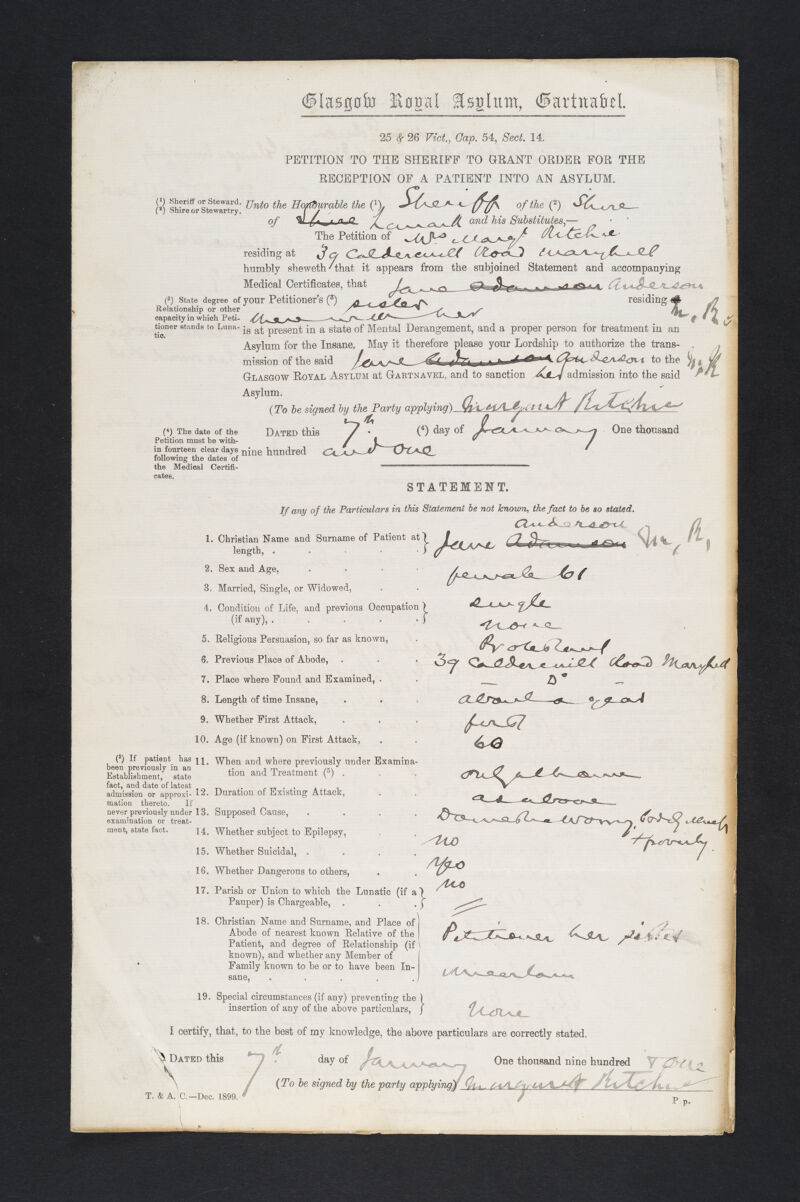 Glasgow Royal Asylum, Gartnavel.
25 & 26 Vict., Cap. 54, Sect. 14.
PETITION TO THE SHERIFF TO GRANT ORDER FOR THE
RECEPTION OF A PATIENT INTO AN ASYLUM.
(1) Sheriff or Steward.
(2) Shire or Stewartry.
Unto the Honourable the (1) Sheriff of the (2) Shire
of Shire Lanark and his Substitutes,—
The Petition of Mrs Margt Ritchie
residing at 39 Caldercuilt Road Maryhill
humbly sheweth that it appears from the subjoined Statement and accompanying
Medical Certificates, that Jane Adamson Anderson
(3) State degree of
Relationship or other
capacity in which Peti-
tioner stands to Luna-
tic.
your Petitioner's (3) sister residing
there with her M, R
is at present in a state of Mental Derangement, and a proper person for treatment in an
Asylum for the Insane, May it therefore please your Lordship to authorize the trans-
mission of the said Jane Adamson Anderson to the M, R
GLASGOW ROYAL ASYLUM AT GARTNAVEL, and to sanction her admission into the said
Asylum.
(To be signed by the Party applying) Margaret Ritchie
(4) The date of the
Petition must be with-
in fourteen clear days
following the dates of
the Medical Certifi-
cates.
DATED this 7th (4) day of January One thousand
nine hundred and one
STATEMENT.
If any of the Particulars in this Statement be not known, the fact to be so stated.
Anderson
1. Christian Name and Surname of Patient at length, . Jane Adamson M, R,
2. Sex and Age, female 61
3. Married, Single, or Widowed, single
4. Condition of Life, and previous Occupation (if any), . none
5. Religious Persuasion, so far as known, Protestant
6. Previous Place of Abode, 39 Caldercuilt Road Maryhill
7. Place where Found and Examined, . Do
8. Length of time Insane, about a year
9. Whether First Attack, first
10. Age (if known) on First Attack, 60
(5) If patient has
been previously in an
Establishment, state
fact, and date of latest
admission or approxi-
mation thereto. If
never previously under
examination or treat-
ment, state fact.
11. When and where previously under Examina-
tion and Treatment (5) . only at home
12. Duration of Existing Attack, as above
13. Supposed Cause, Domestic worry, bodily
+ poverty.
14. Whether subject to Epilepsy, no
15. Whether Suicidal, . yes
16. Whether Dangerous to others, no
17. Parish or Union to which the Lunatic (if a
Pauper) is Chargeable, . "
18. Christian Name and Surname, and Place of
Abode of nearest known Relative of the
Patient, and degree of Relationship (if
known), and whether any Member of
Family known to be or to have been In-
sane, Petitioner her sister
uncertain
19. Special circumstances (if any) preventing the
insertion of any of the above particulars, None
I certify, that, to the best of my knowledge, the above particulars are correctly stated.
DATED this 7th day of January One thousand nine hundred & one
(To be signed by the party applying) Margaret Ritchie
T. & A. C.—Dec. 1899.
P p.